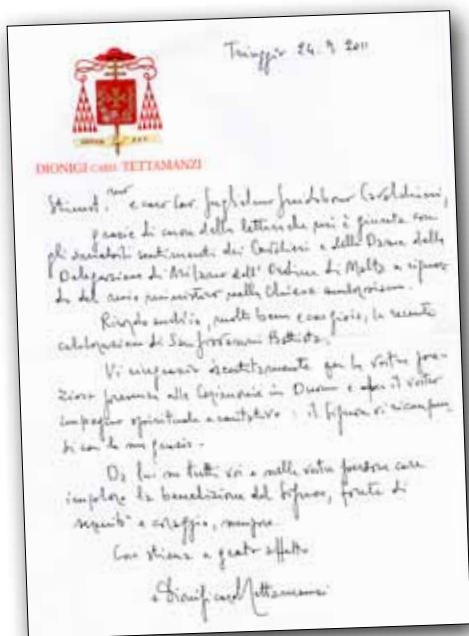 Triuggio 24.9.2011
DIONIGI CARD. TETTAMANZI
Stimat.mo e caro Cav. Guglielmo Guidobono Cavalchini,
grazie di cuore della lettera che mi è giunta con
gli sentimenti dei Cavalieri e delle Dame della
Delegazione di Milano dell'Ordine di Malta a riguar-
do del mio ministero nella Chiesa ambrosiana.
Ricordo molto bene e con gioia, la recente
celebrazione di San Giovanni Battista.
Vi ringrazio sentitamente per la vostra pre-
ziosa presenza alle Cerimonie in Duomo e per il vostro
impegno spirituale e caritativo: il Signore vi ricompen-
si con la sua grazia.
Da lui su tutti voi e sulle vostre persone care
imploro la benedizione del Signore, fonte di
serenità e coraggio, sempre.
Con stima e grato affetto
+ Dionigi card. Tettamanzi